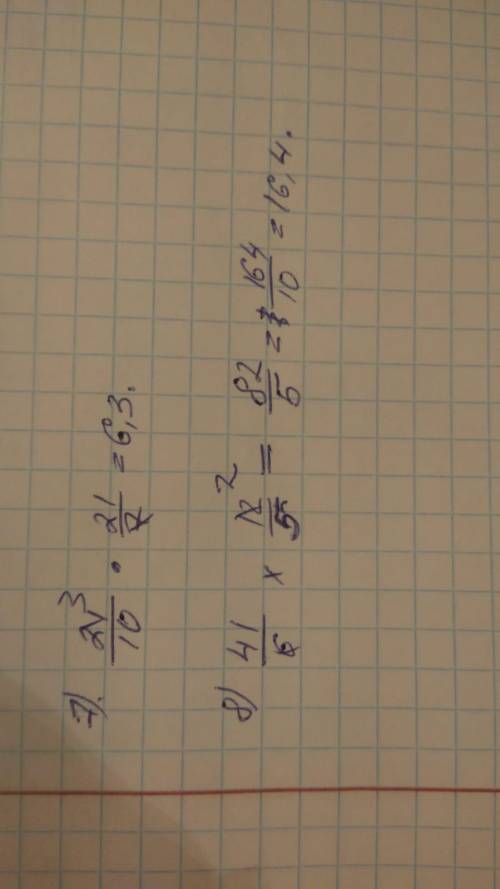 7). 21 3/10 • 21/7 = 6,3.
8) 41/6 × 12 2/5 = 82/5 = 164/10 = 16,4.